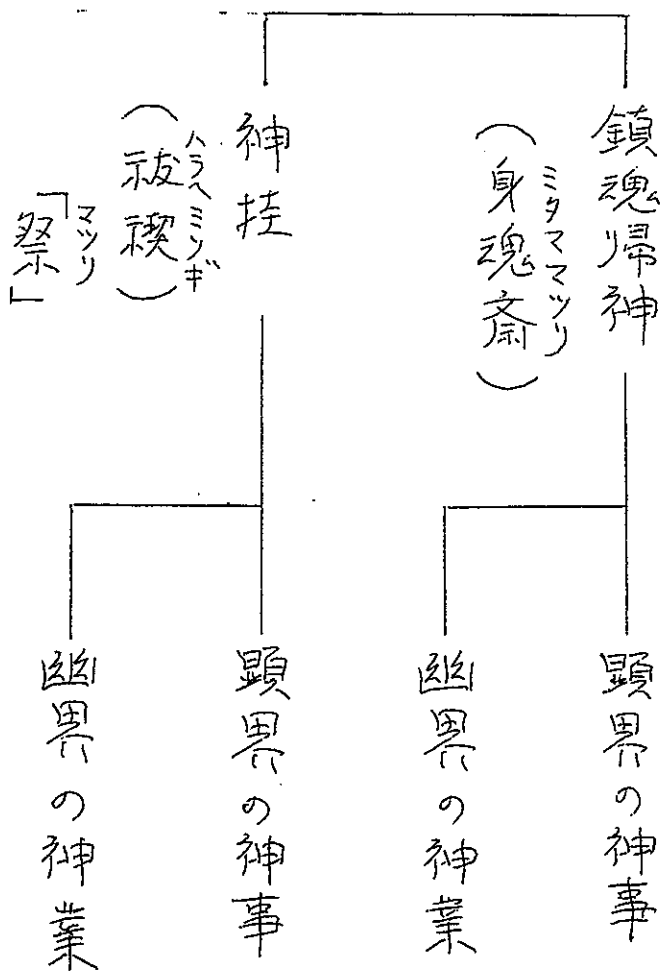 鎮魂帰神
(身魂斎)
ミタママツリ
顕界の神事
幽界の神業
神挂
(祓禊)
ハラヘミソギ
「祭」
マツリ
顕界の神事
幽界の神業